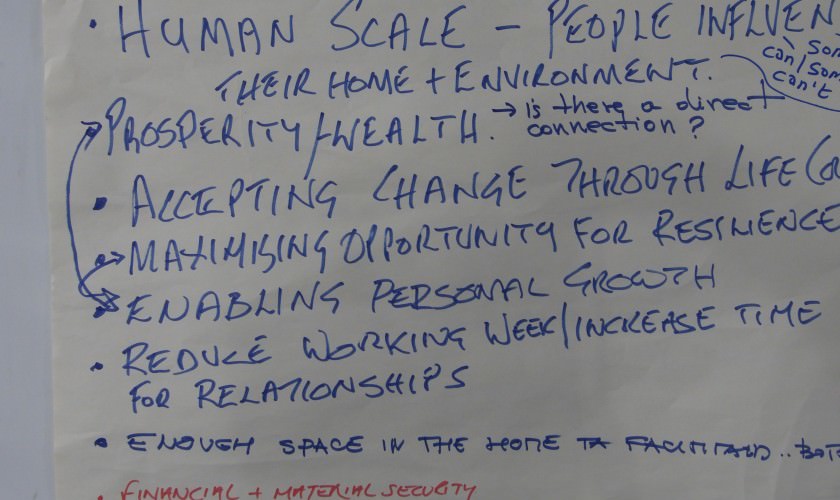 • HUMAN SCALE - PEOPLE INFLUEN
THEIR HOME + ENVIRONMENT.
can/som
can't
PROSPERITY/WEALTH. → is there a direct
connection?
• ACCEPTING CHANGE THROUGH LIFE
• MAXIMISING OPPORTUNITY FOR RESILIENCE
• ENABLING PERSONAL GROWTH
• REDUCE WORKING WEEK/INCREASE TIME
FOR RELATIONSHIPS
• ENOUGH SPACE IN THE HOME
• FINANCIAL + MATERIAL SECURITY